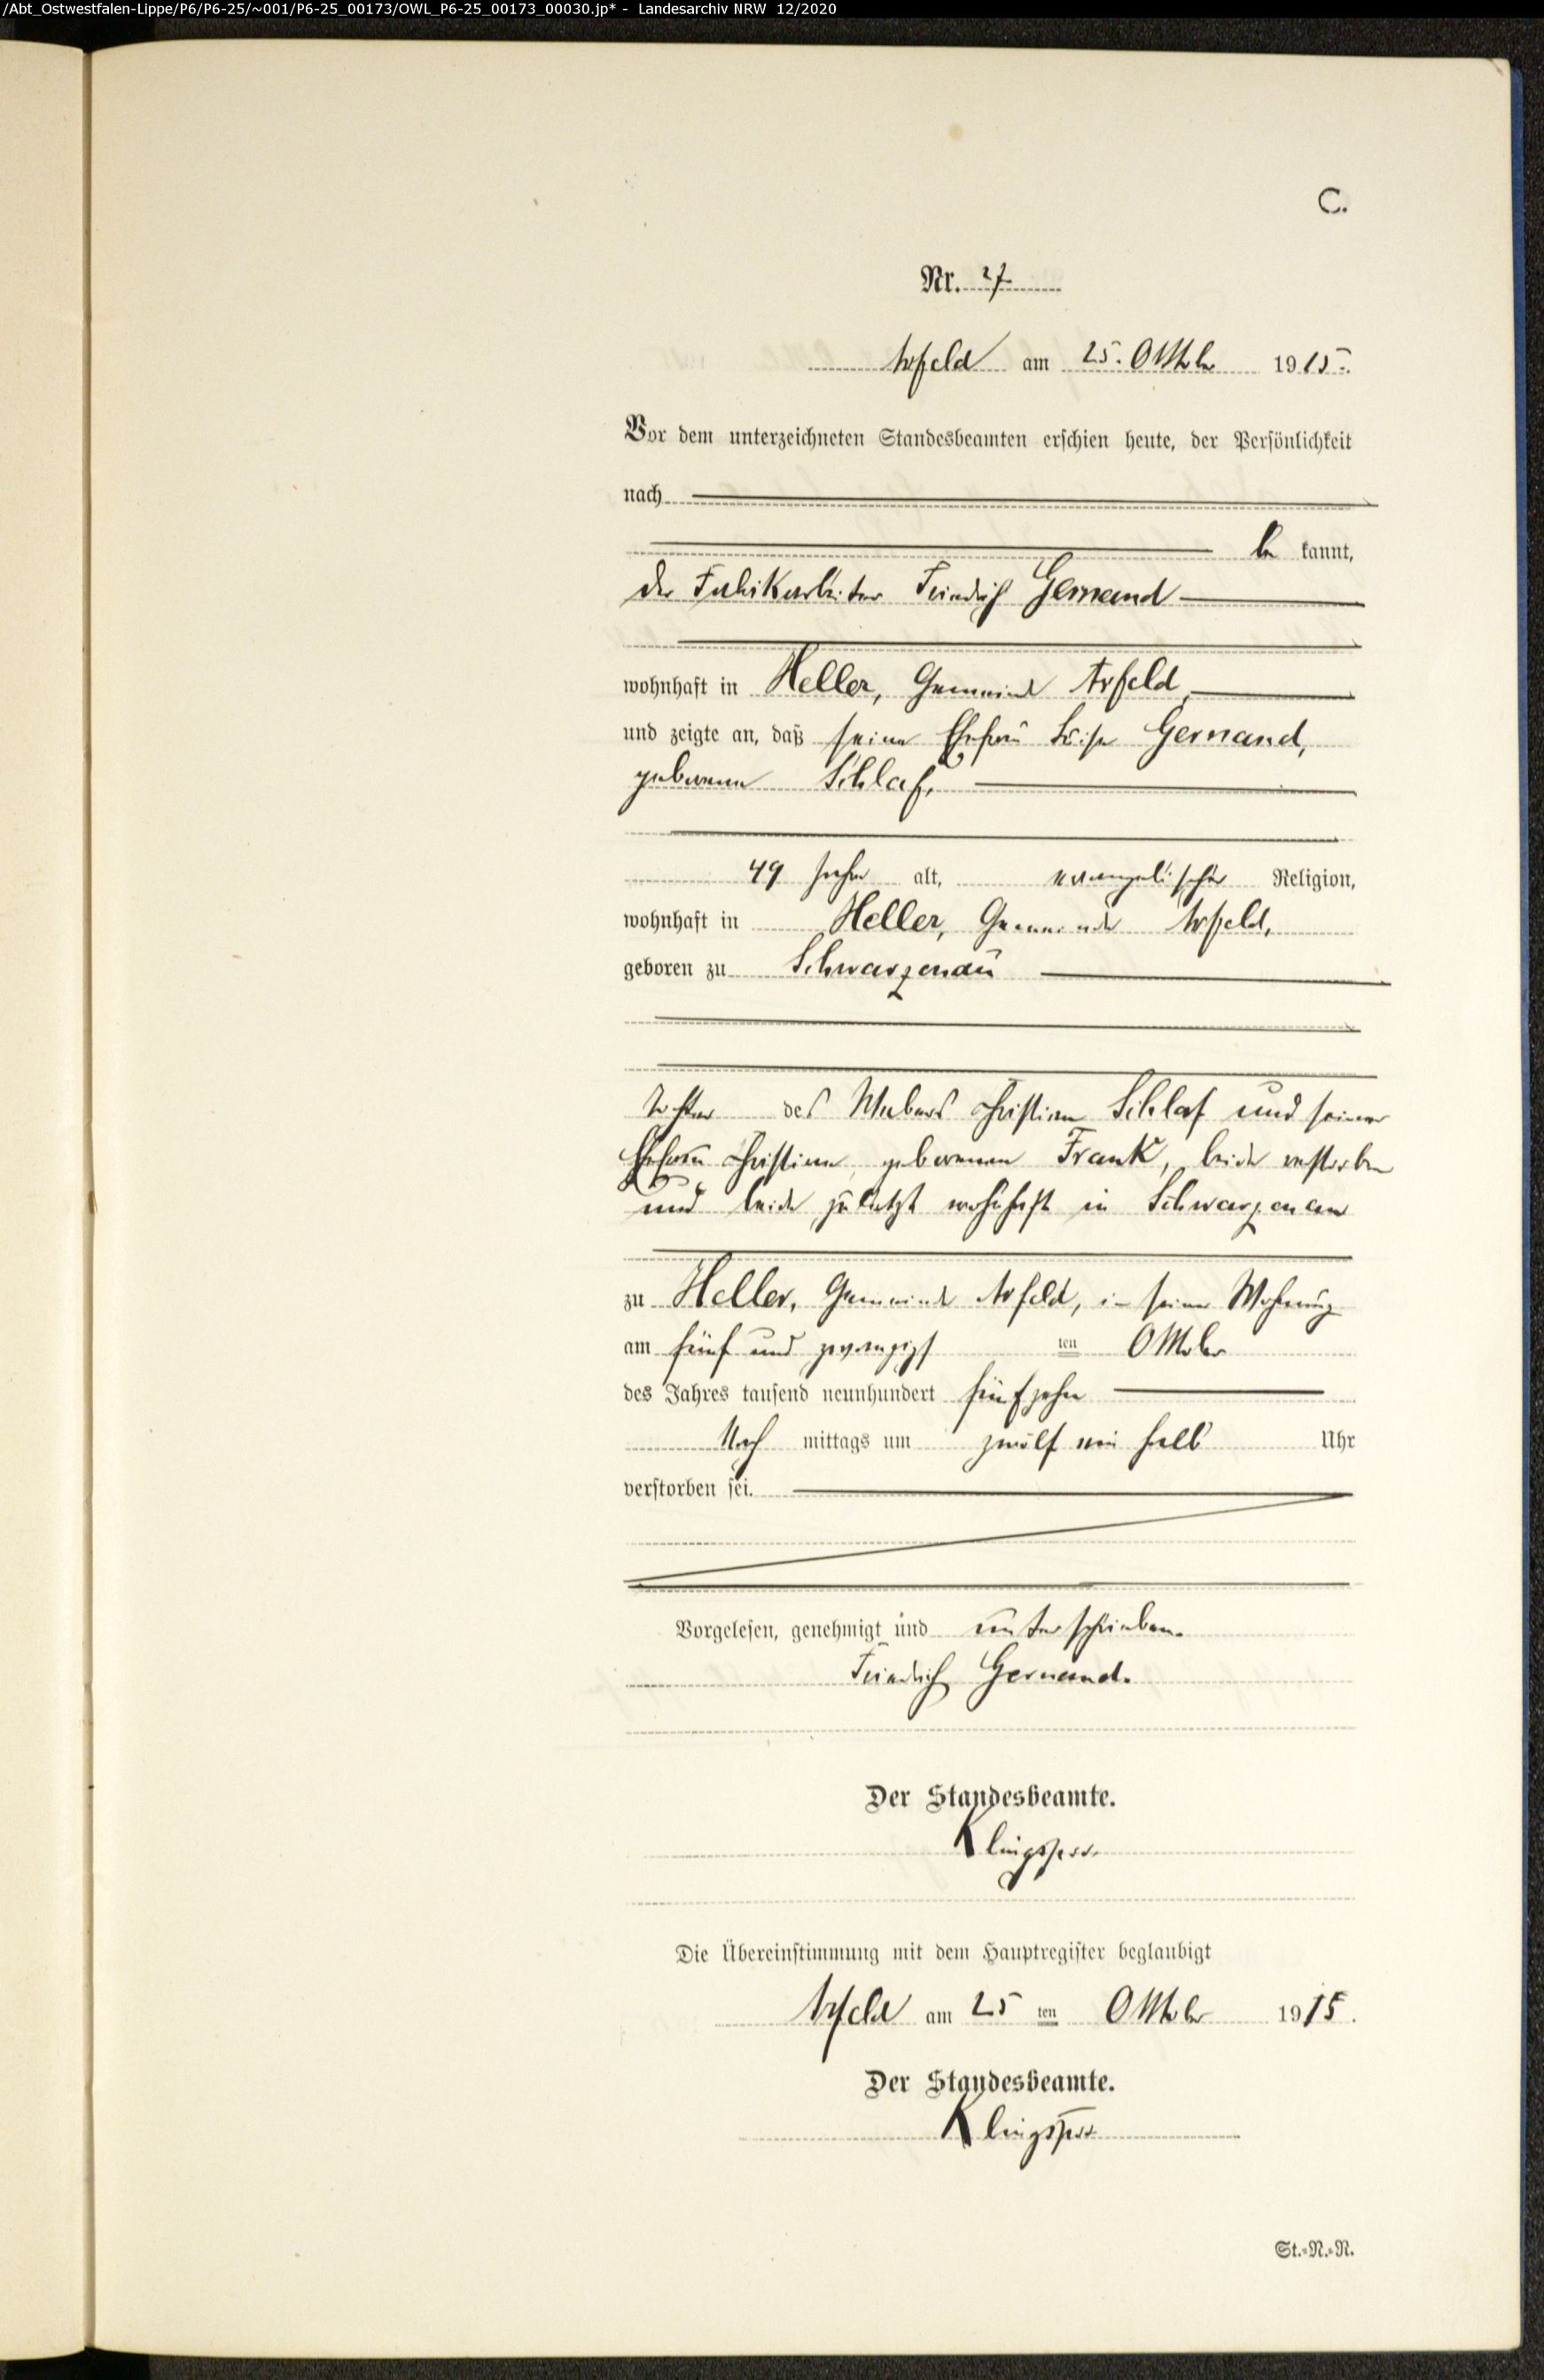 /Abt_Ostwestfalen-Lippe/P6/P6-25/~001/P6-25_00173/OWL_P6-25_00173_00030.jp* - Landesarchiv NRW 12/2020
C.
Nr. 27
Arfeld am 25. Oktober 1915.
Vor dem unterzeichneten Standesbeamten erschien heute, der Persönlichkeit
nach
be kannt,
der Fabrikarbeiter Friedrich Gernand
wohnhaft in Heller, Gemeinde Arfeld,
und zeigte an, daß seine Ehefrau Luise Gernand,
geborene Schlaf,
49 Jahre alt, evangelischer Religion,
wohnhaft in Heller, Gemeinde Arfeld,
geboren zu Schwarzenau
Tochter des Webers Christian Schlaf und seiner
Ehefrau Christiane, geborenen Frank, beide verstorben
und beide zuletzt wohnhaft in Schwarzenau
zu Heller, Gemeinde Arfeld, in seiner Wohnung
am fünf und zwanzigs ten Oktober
des Jahres tausend neunhundert fünfzehn
Nach mittags um zwölf ein halb Uhr
verstorben sei.
Vorgelesen, genehmigt und unterschrieben.
Friedrich Gernand.
Der Standesbeamte.
Klingspor
Die Übereinstimmung mit dem Hauptregister beglaubigt
Arfeld am 25 ten Oktober 1915.
Der Standesbeamte.
Klingspor
St.-N.-N.